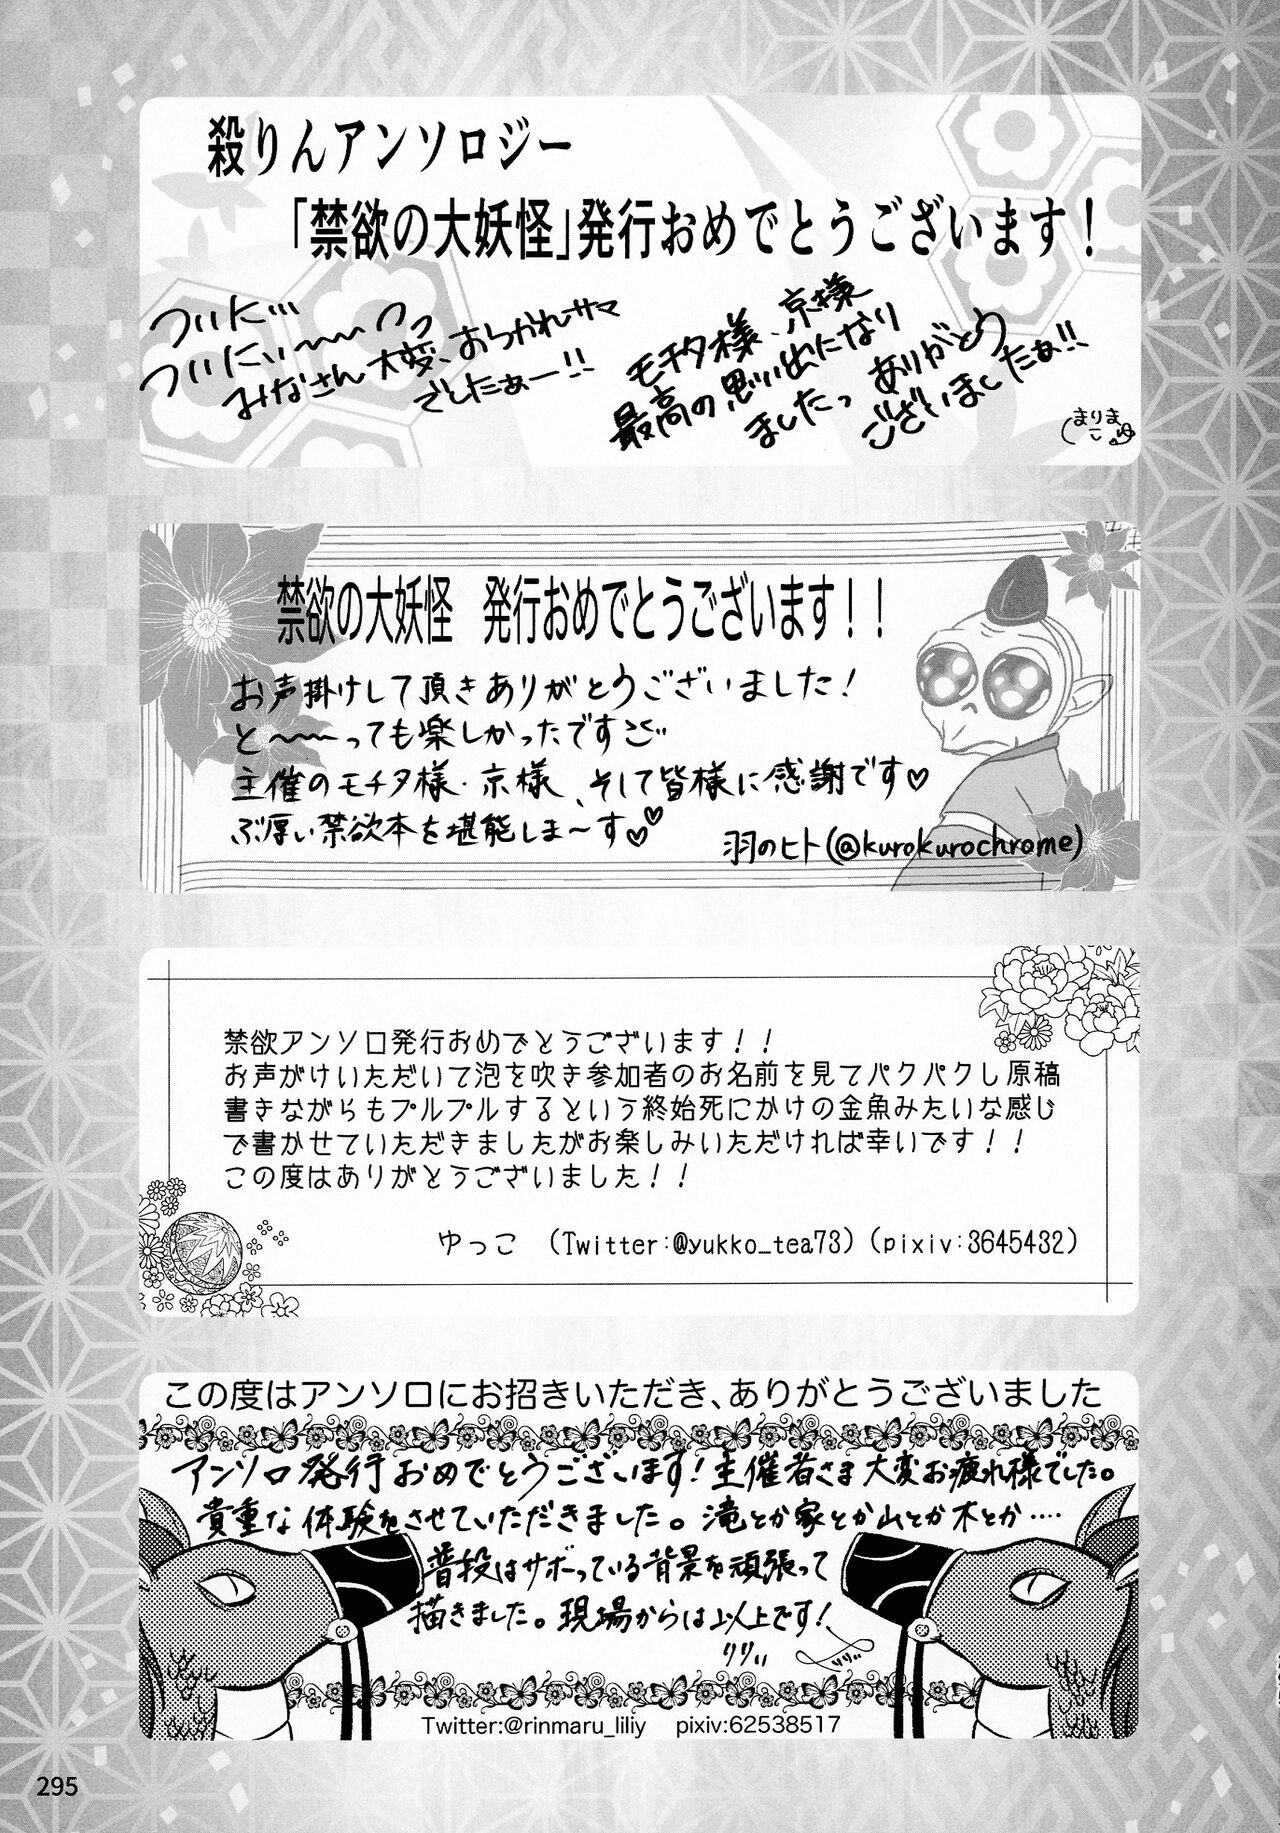 殺りんアンソロジー
「禁欲の大妖怪」発行おめでとうございます！
ついに…
ついにぃ〜〜っっ
みなさん大変、おつかれサマ
でしたぁー!!
モチタ様、京様
最高の思い出になり
ましたっ ありがとう
ございましたぁ!!
まりま
禁欲の大妖怪 発行おめでとうございます！！
お声掛けして頂きありがとうございました！
と〜〜っても楽しかったです
主催のモチタ様・京様、そして皆様に感謝です♡
ぶ厚い禁欲本を堪能しま〜す♡♡
羽のヒト(@kurokurochrome)
禁欲アンソロ発行おめでとうございます！！
お声がけいただいて泡を吹き参加者のお名前を見てパクパクし原稿
書きながらもプルプルするという終始死にかけの金魚みたいな感じ
で書かせていただきましたがお楽しみいただければ幸いです！！
この度はありがとうございました！！
ゆっこ (Twitter:@yukko_tea73)(pixiv:3645432)
この度はアンソロにお招きいただき、ありがとうございました
アンソロ発行おめでとうございます！主催者さま大変お疲れ様でした。
貴重な体験をさせていただきました。滝とか家とか山とか木とか‥‥
普段はサボっている背景を頑張って
描きました。現場からは以上です！
りりぃ
Twitter:@rinmaru_liliy pixiv:62538517
295